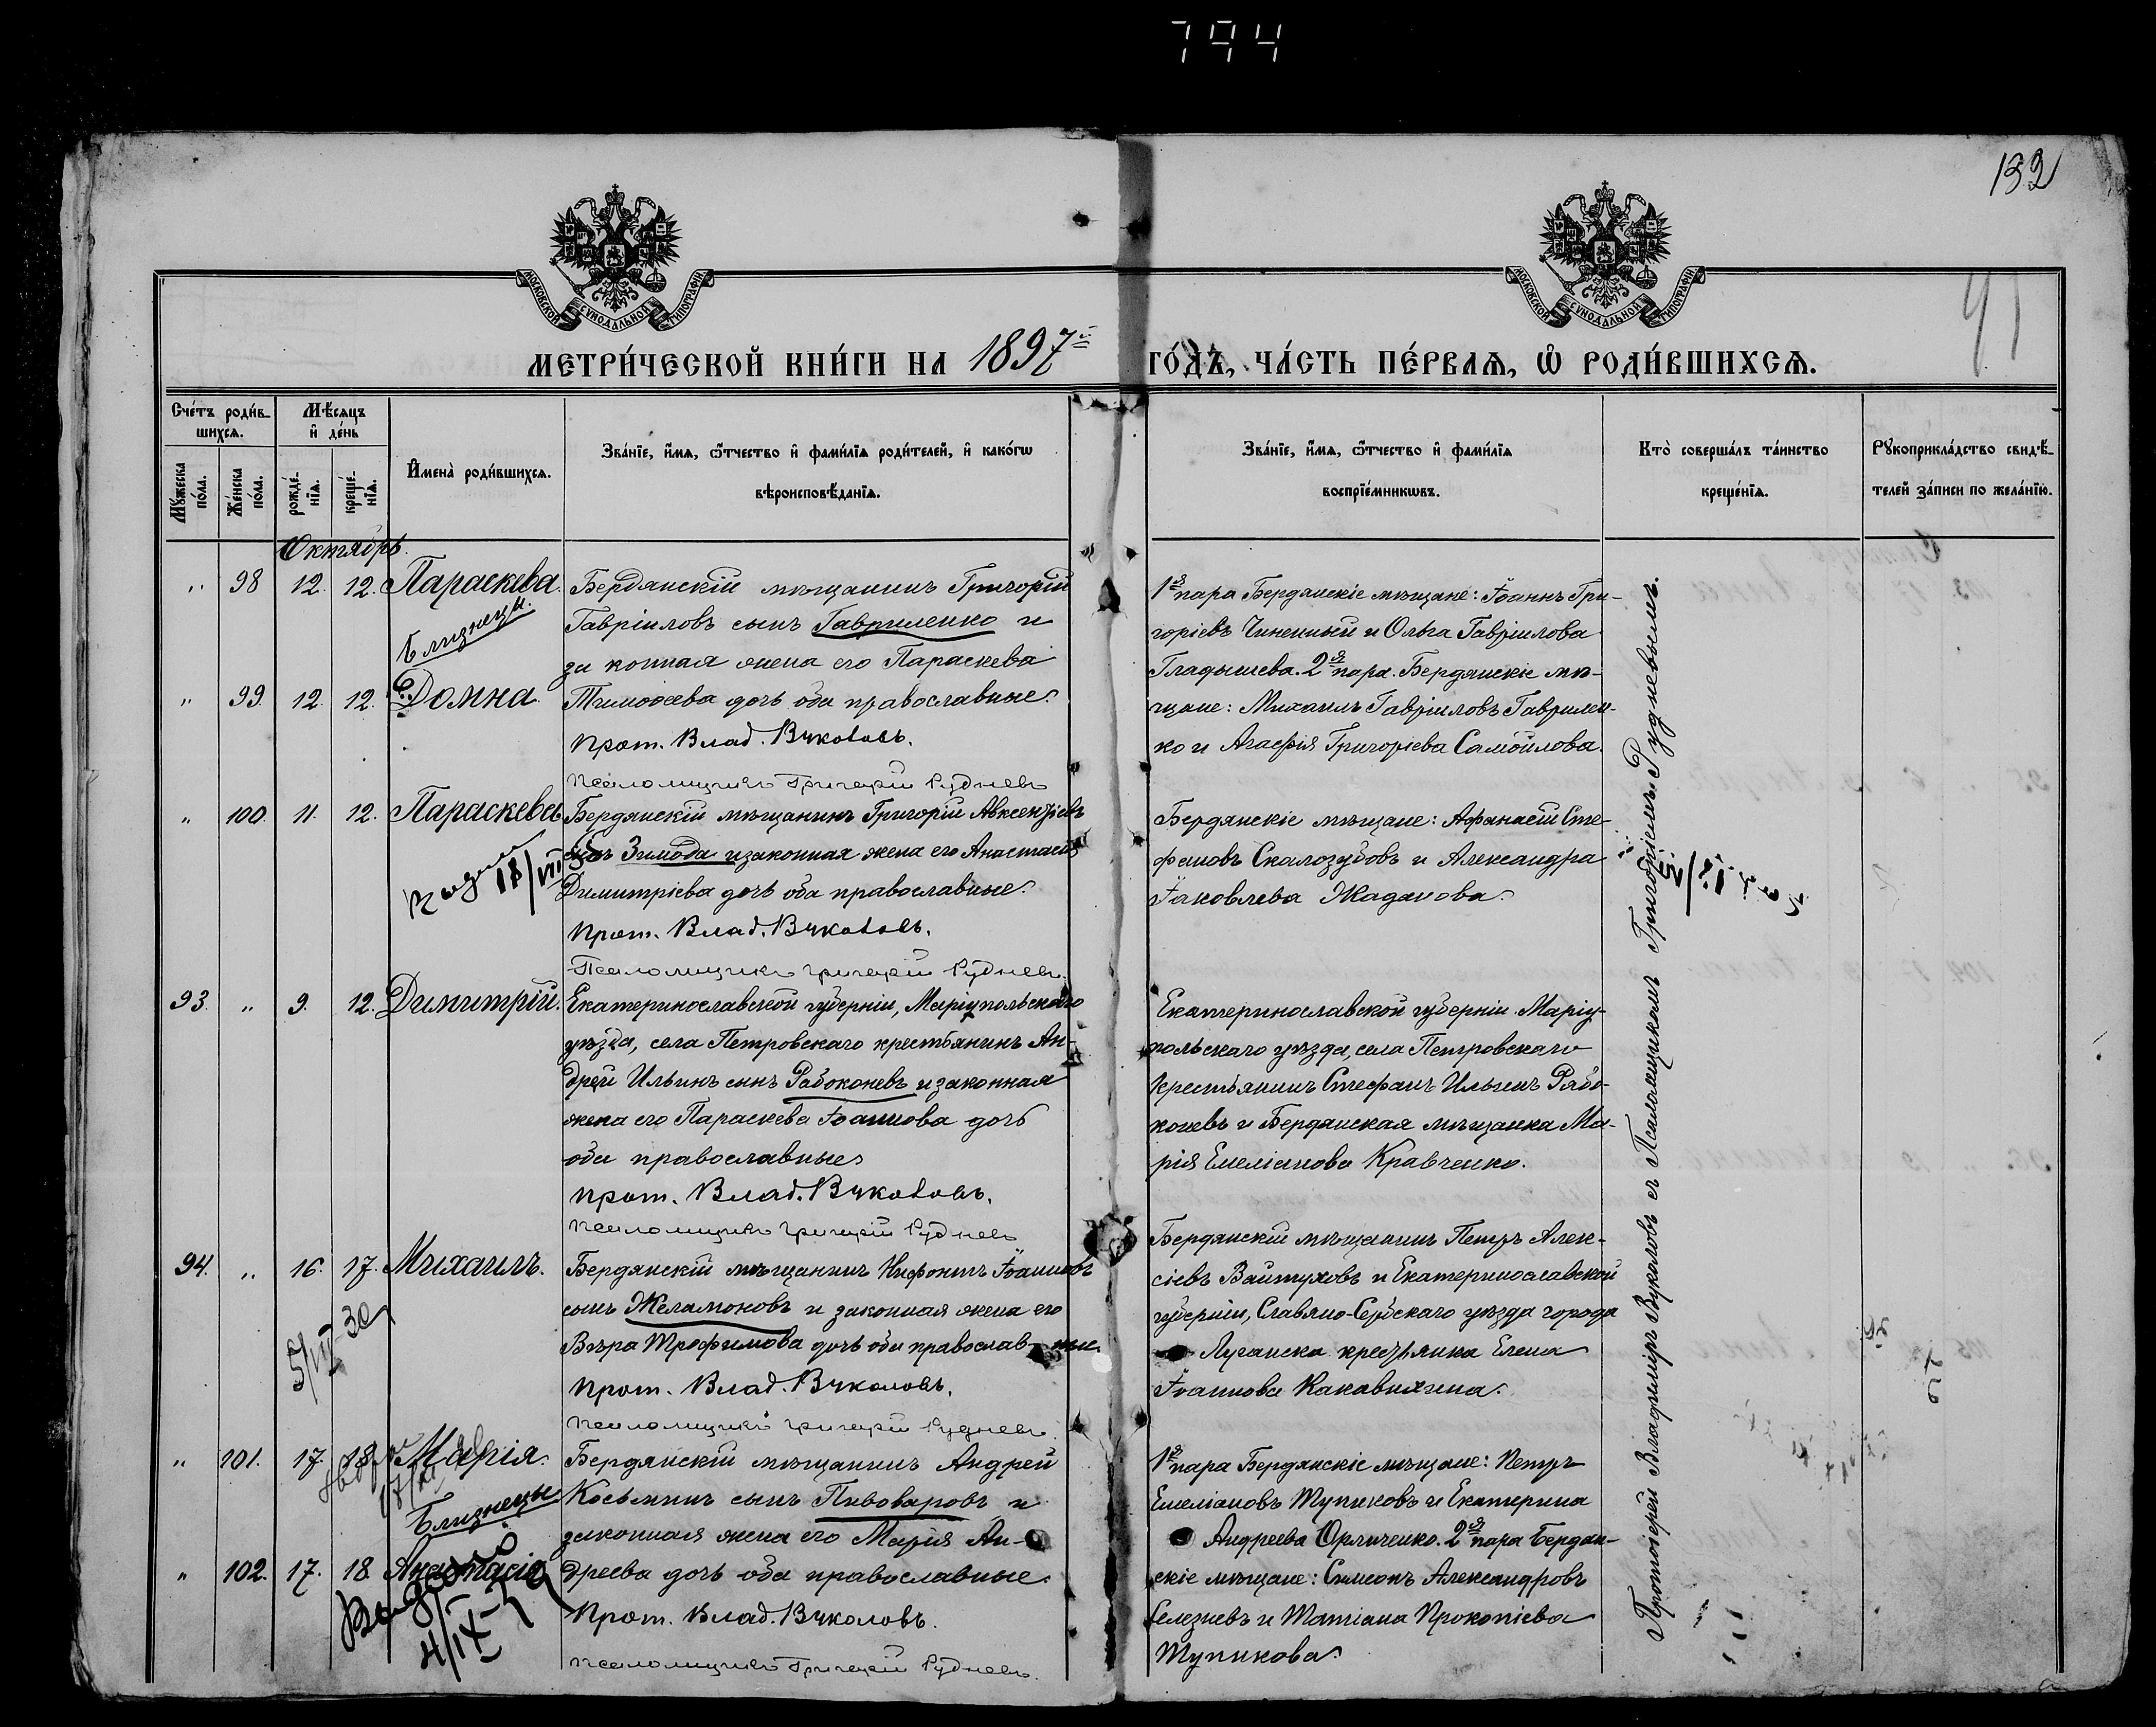 794
132
91
МОСКОВСКОЙ СѴНОДАЛЬНОЙ ТИПОГРАФІИ
МОСКОВСКОЙ СѴНОДАЛЬНОЙ ТИПОГРАФІИ
МЕТРИ́ЧЕСКОЙ КНИ́ГИ НА 1897й ГО́ДЪ, ЧА́СТЬ ПЕ́РВАѦ, Ѡ҆ РОДИ́ВШИХСѦ.
Сче́тъ роди́в-
шихсѧ.
Мꙋ́жеска по́ла.
Же́нска по́ла.
Мѣ́сѧцъ
и҆ де́нь
рожде́-
нїѧ.
креще́-
нїѧ.
И҆мена̀ роди́вшихсѧ.
Зва́нїе, и҆́мѧ, ѻ҆́тчество и҆ фами́лїѧ роди́телей, и҆ како́гѡ
вѣроисповѣ́данїѧ.
Зва́нїе, и҆́мѧ, ѻ҆́тчество и҆ фами́лїѧ
воспрїе́мникѡвъ.
Кто̀ соверша́лъ та́инство
креще́нїѧ.
Рꙋкоприкла́дство свидѣ́-
телей за́писи по жела́нїю.
Октябрь.
" 98 12. 12. Параскева.
Близнецы.
" 99. 12. 12. Домна.
Бердянскій мѣщанинъ Григорій
Гавріиловъ сынъ Гавриленко и
законная жена его Параскева
Тимоѳеева дочь оба православные.
Прот. Влад. Вуколовъ.
Псаломщикъ Григорій Рудневъ
1я пара Бердянскіе мѣщане: Іоаннъ Гри-
горіевъ Чиненный и Ольга Гавріилова
Гладышева. 2я пара. Бердянскіе мѣ-
щане: Михаилъ Гавріиловъ Гаврилен-
ко и Агафія Григоріева Самойлова.
" 100. 11. 12. Параскева
18/VIII
Бердянскій мѣщанинъ Григорій Авксентіевъ
сынъ Зимода и законная жена его Анастасія
Димитріева дочь оба православные.
Прот. Влад. Вуколовъ.
Псаломщикъ Григорій Рудневъ.
Бердянскіе мѣщане: Афанасій Сте-
фановъ Скалозубовъ и Александра
Іаковлева Жаданова.
93. " 9. 12. Димитрій.
Екатеринославской губерніи, Маріупольскаго
уѣзда, села Петровскаго крестьянинъ Ан-
дрей Ильинъ сынъ Рабоконевъ и законная
жена его Параскева Іоаннова дочь
оба православные
Прот. Влад. Вуколовъ.
Псаломщикъ Григорій Рудневъ
Екатеринославской губерніи. Маріу-
польскаго уѣзда, села Петровскаго
крестьянинъ Стефанъ Ильинъ Рябо-
коневъ и Бердянская мѣщанка Ма-
рія Емеліанова Кравченко.
94. " 16. 17. Михаилъ.
5/VII-30
Бердянскій мѣщанинъ Нифонтъ Іоанновъ
сынъ Желамоновъ и законная жена его
Вѣра Трофимова дочь оба православные.
Прот. Влад. Вуколовъ.
Псаломщикъ Григорій Рудневъ.
Бердянскій мѣщанинъ Петръ Алек-
сіевъ Вайтуховъ и Екатеринославской
губерніи, Славяно-Сербскаго уѣзда города
Луганска крестьянка Елена
Іоаннова
" 101. 17. 18. Марія.
Близнецы
" 102. 17. 18 Анастасія
4/IX-
Бердянскій мѣщанинъ Андрей
Косьминъ сынъ Пивоваровъ и
законная жена его Марія Ан-
дреева дочь оба православные.
Прот. Влад. Вуколовъ.
Псаломщикъ Григорій Рудневъ.
1я пара Бердянскіе мѣщане: Петръ
Емеліановъ Тупиковъ и Екатерина
Андреева Орличенко. 2я пара Бердян-
скіе мѣщане: Симеонъ Александровъ
Селезневъ и Татіана Прокопіева
Тупикова.
Протоіерей Владиміръ Вуколовъ съ Псаломщикомъ Григоріемъ Рудневымъ.